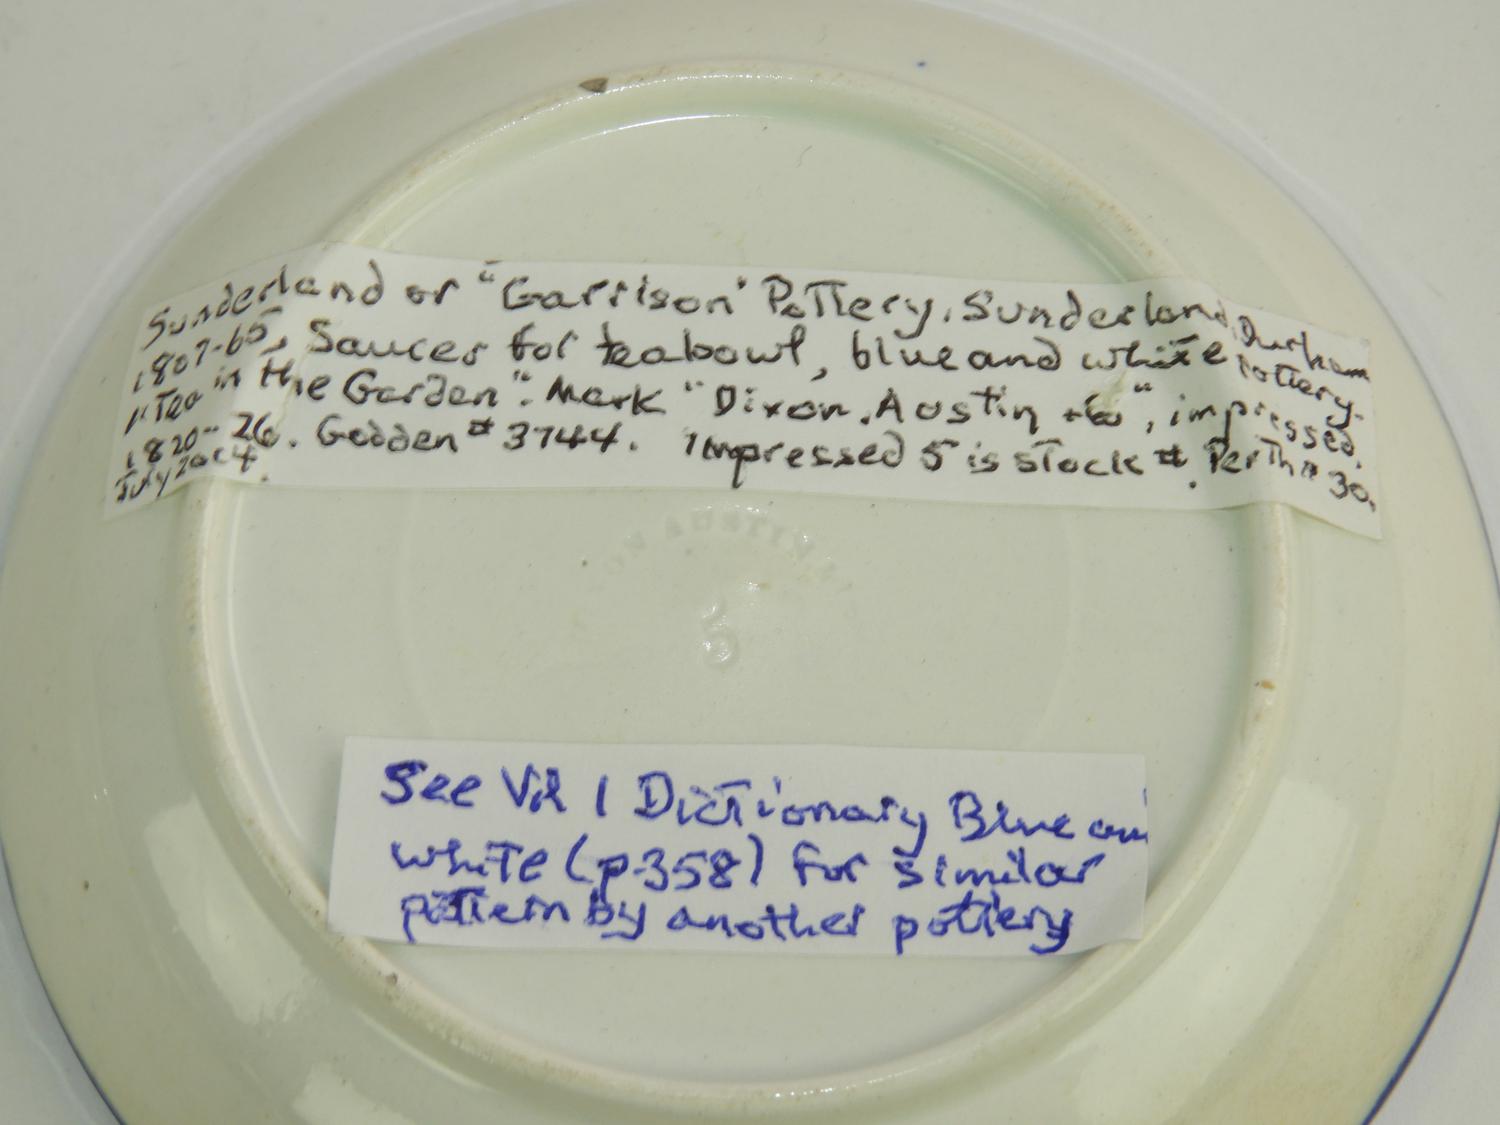 Sunderland or "Garrison" Pottery, Sunderland, Durham
1807-65, Saucer for teabowl, blue and white pottery.
"Tea in the Garden". Mark "Dixon, Austin + Co", impressed.
1820-26. Godden # 3744. Impressed 5 is stock #. Perth # 30.
July 2004.
ON AUSTIN &
5
See Vol 1 Dictionary Blue and
white (p.358) for similar
pattern by another pottery